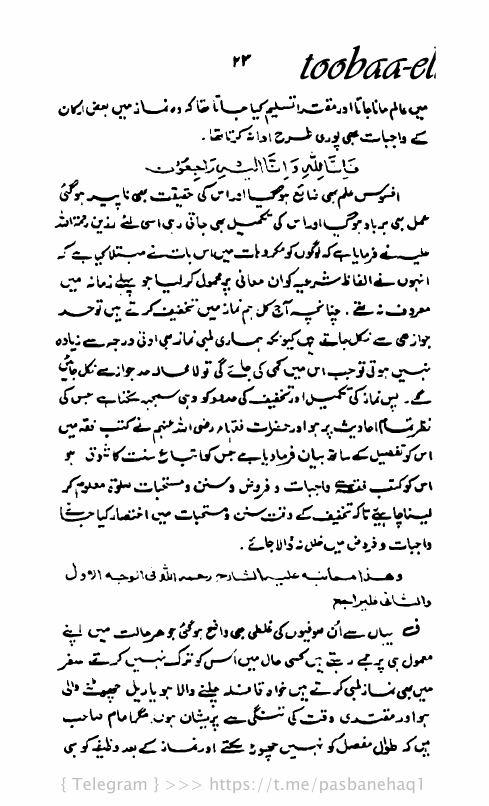 ۲۳
toobaa-el
میں عالم مانا جاتا اور مقتدا تسلیم کیا جاتا تھا کہ وہ نماز میں بعض ارکان
کے واجبات بھی پوری طرح ادا نہ کرتا تھا۔
فَاِنَّا لِلّٰہِ وَاِنَّا اِلَیْہِ رَاجِعُوْنَ
افسوس علم بھی ضائع ہوگیا اور اس کی حقیقت بھی ناپید ہوگئی
عمل بھی برباد ہوگیا اور اس کی تکمیل بھی جاتی رہی اسی لئے رذین رحمۃ اللہ
علیہ نے فرمایا ہے کہ لوگوں کو مکروہات میں اس بات نے مبتلا کیا ہے کہ
انہوں نے الفاظ شرعیہ کو ان معانی پر محمول کرلیا جو پہلے زمانہ میں
معروف نہ تھے۔ چنانچہ آج کل ہم نماز میں تخفیف کرتے ہیں تو حد
جواز ہی سے نکل جاتے ہیں کیونکہ ہماری لمبی نماز ہی ادنیٰ درجہ سے زیادہ
نہیں ہوتی تو جب اس میں کمی کی جائے گی تو لا محالہ حد جواز سے نکل جائیں
گے۔ پس نماز کی تکمیل اور تخفیف کی حد کو وہی سمجھ سکتا ہے جس کی
نظر تمام احادیث پر ہو اور حضرات فقہاء رضی اللہ عنہم نے کتب فقہ میں
اس کو تفصیل کے ساتھ بیان فرما دیا ہے جس کو اتباع سنت کا شوق ہو
اس کو کتب فقہ سے واجبات و فروض و سنن و مستحبات صلوٰۃ معلوم کر
لینا چاہیئے تاکہ تخفیف کے وقت سنن و مستحبات میں اختصار کیا جائے
واجبات و فروض میں خلل نہ ڈالا جائے۔
وھذا مما نبہ علیہ الشارح رحمہ اللہ فی الوجہ الاول
والثانی فلیراجع
ف بیان سے ان صوفیوں کی غلطی بھی واضح ہوگئی جو ہر حالت میں اپنے
معمول ہی پر جمے رہتے ہیں کسی حال میں اس کو ترک نہیں کرتے سفر
میں بھی نماز لمبی کرتے ہیں خواہ قافلہ چلنے والا ہو یا ریل چھوٹنے والی
ہو اور مقتدی وقت کی تنگی سے پریشان ہوں مگر امام صاحب
ہیں کہ طوال مفصل کو نہیں چھوڑ سکتے اور نماز کے بعد وظیفہ کو بھی
{ Telegram } >>> https://t.me/pasbanehaq1